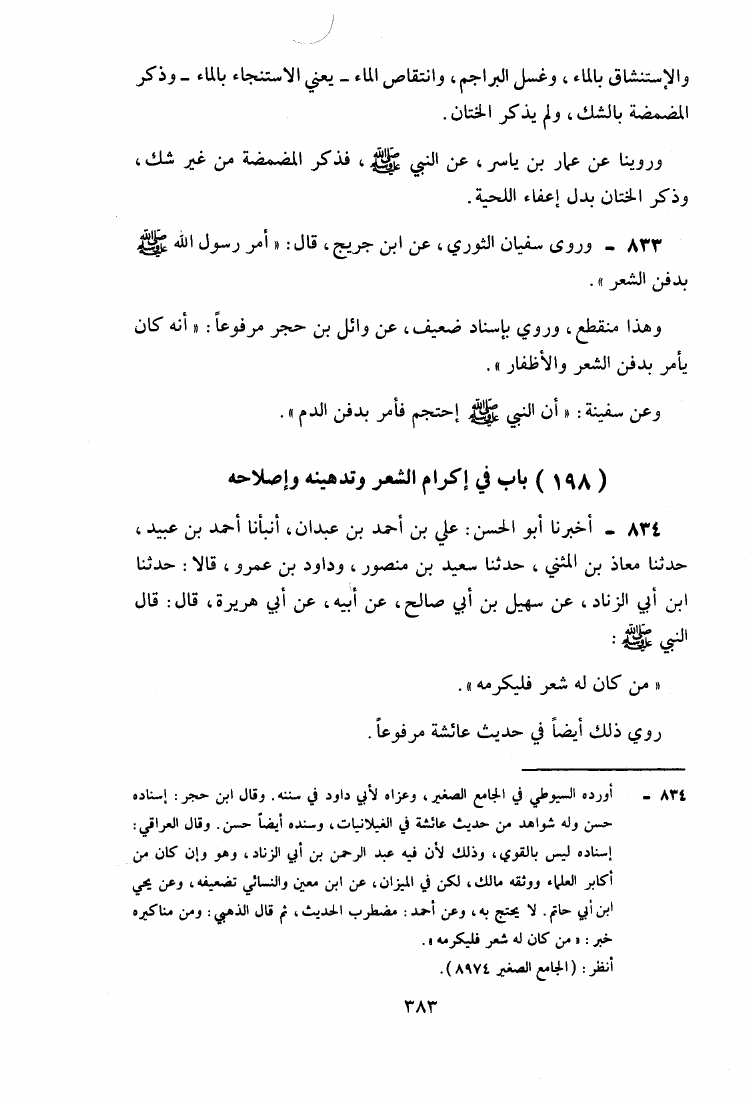 والإستنشاق بالماء ، وغسل البراجم ، وانتقاص الماء ــ يعني الاستنجاء بالماء ــ وذكر
المضمضة بالشك ، ولم يذكر الختان .
وروينا عن عمار بن ياسر ، عن النبي ﷺ ، فذكر المضمضة من غير شك ،
وذكر الختان بدل إعفاء اللحية .
٨٣٣ ــ وروى سفيان الثوري ، عن ابن جريج ، قال : « أمر رسول الله ﷺ
بدفن الشعر » .
وهذا منقطع ، وروي بإسناد ضعيف ، عن وائل بن حجر مرفوعاً : « أنه كان
يأمر بدفن الشعر والأظفار » .
وعن سفينة : « أن النبي ﷺ إحتجم فأمر بدفن الدم » .
( ١٩٨ ) باب في إكرام الشعر وتدهينه وإصلاحه
٨٣٤ ــ أخبرنا أبو الحسن : علي بن أحمد بن عبدان ، أنبأنا أحمد بن عبيد ،
حدثنا معاذ بن المثني ، حدثنا سعيد بن منصور ، وداود بن عمرو ، قالا : حدثنا
ابن أبي الزناد ، عن سهيل بن أبي صالح ، عن أبيه ، عن أبي هريرة ، قال : قال
النبي ﷺ :
« من كان له شعر فليكرمه » .
روي ذلك أيضاً في حديث عائشة مرفوعاً .
٨٣٤ ــ أورده السيوطي في الجامع الصغير ، وعزاه لأبي داود في سننه . وقال ابن حجر : إسناده
حسن وله شواهد من حديث عائشة في الغيلانيات ، وسنده أيضاً حسن . وقال العراقي :
إسناده ليس بالقوي ، وذلك لأن فيه عبد الرحمن بن أبي الزناد ، وهو وإن كان من
أكابر العلماء ووثقه مالك ، لكن في الميزان ، عن ابن معين والنسائي تضعيفه ، وعن يحي
ابن أبي حاتم . لا يحتج به ، وعن أحمد : مضطرب الحديث ، ثم قال الذهبي : ومن مناكيره
خبر : « من كان له شعر فليكرمه » .
أنظر : ( الجامع الصغير ٨٩٧٤ ) .
٣٨٣